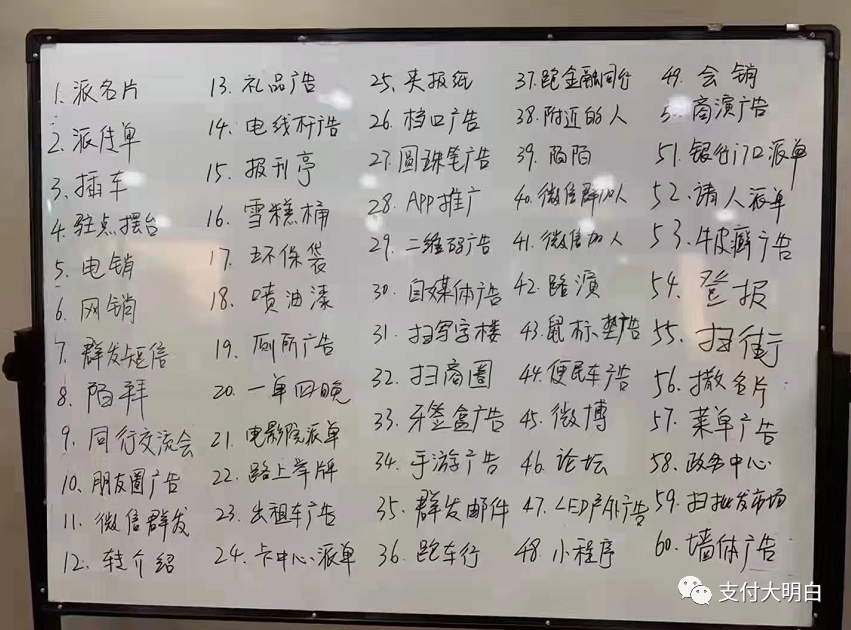 1. 派名片
2. 派传单
3. 插车
4. 驻点摆台
5. 电销
6. 网销
7. 群发短信
8. 陌拜
9. 同行交流会
10. 朋友圈广告
11. 微信群发
12. 转介绍
13. 礼品广告
14. 电线杆广告
15. 报刊亭
16. 雪糕桶
17. 环保袋
18. 喷油漆
19. 厕所广告
20. 一单四晚
21. 电影院派单
22. 路上举牌
23. 出租车广告
24. 卡中心派单
25. 夹报纸
26. 档口广告
27. 圆珠笔广告
28. APP推广
29. 二维码广告
30. 自媒体广告
31. 扫写字楼
32. 扫商圈
33. 牙签盒广告
34. 手游广告
35. 群发邮件
36. 跑车行
37. 跑金融同行
38. 附近的人
39. 陌陌
40. 微信群加人
41. 微信加人
42. 路演
43. 鼠标垫广告
44. 便民车广告
45. 微博
46. 论坛
47. LED户外广告
48. 小程序
49. 会销
50. 商演广告
51. 银行门口派单
52. 请人派单
53. 牛皮癣广告
54. 登报
55. 扫街
56. 撒名片
57. 菜单广告
58. 政务中心
59. 扫批发市场
60. 墙体广告
支付大明白